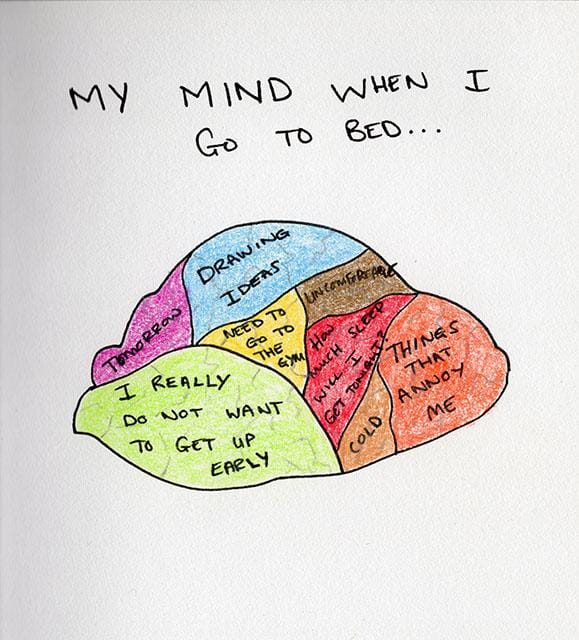 MY MIND WHEN I
GO TO BED...
DRAWING
IDEAS
UNCOMFORTABLE
TOMORROW
NEED TO
GO TO
THE
GYM
HOW
MUCH SLEEP
WILL I
GET TONIGHT?
THINGS
THAT
ANNOY
ME
I REALLY
DO NOT WANT
TO GET UP
EARLY
COLD